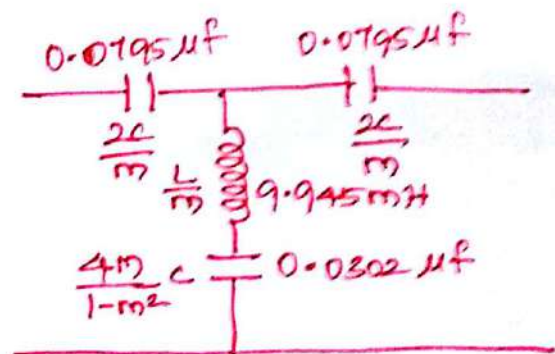 0.0795 μf 0.0795 μf
2c/m 2c/m
L/m 9.945mH
4m/1-m² c 0.0302 μf